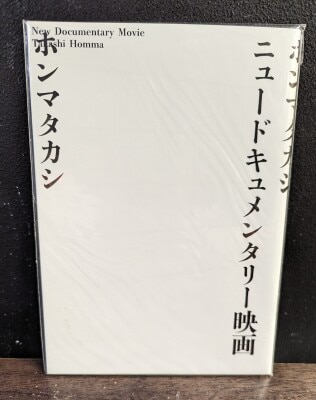 New Documentary Movie
Takashi Homma
ホンマタカシ
ニュードキュメンタリー映画
ホンマタカシ